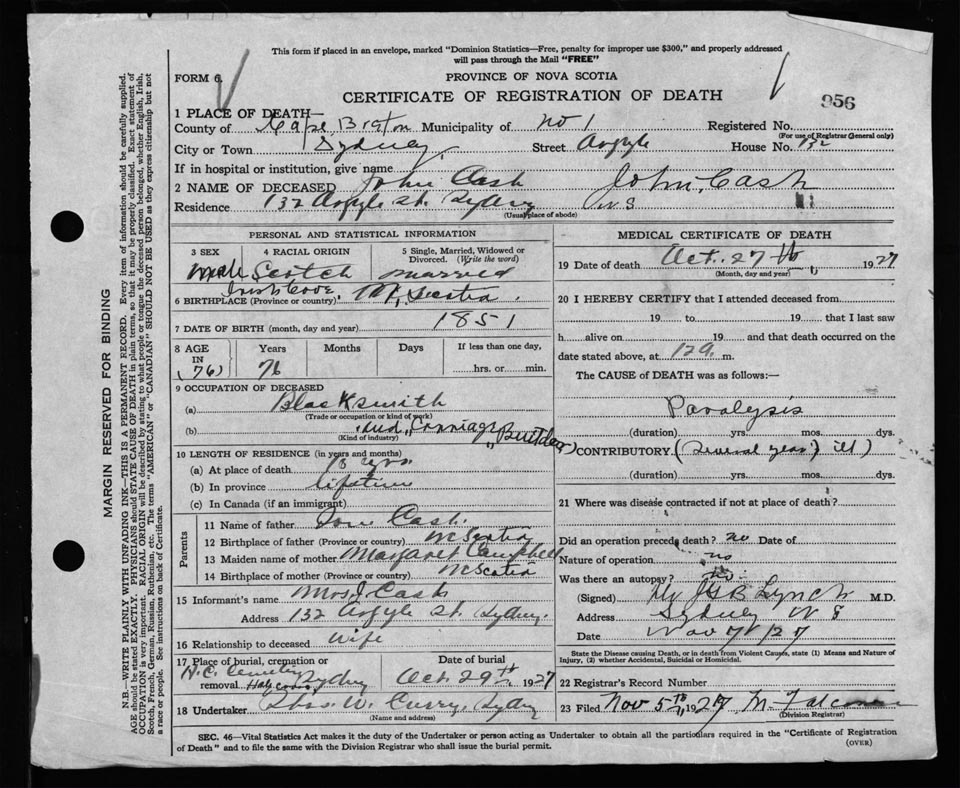 This form if placed in an envelope, marked "Dominion Statistics—Free, penalty for improper use $300," and properly addressed
will pass through the Mail "FREE"
FORM 6
PROVINCE OF NOVA SCOTIA
CERTIFICATE OF REGISTRATION OF DEATH
956
1 PLACE OF DEATH—
County of Cape Breton Municipality of No 1 Registered No.
(For use of Registrar General only)
City or Town Sydney Street Argyle House No. 132
If in hospital or institution, give name
2 NAME OF DECEASED John Cash John Cash
Residence 132 Argyle St. Sydney N S
(Usual place of abode)
PERSONAL AND STATISTICAL INFORMATION
3 SEX 4 RACIAL ORIGIN 5 Single, Married, Widowed or Divorced. (Write the word)
Male Scotch Married
6 BIRTHPLACE (Province or country) Irish Cove, N. Scotia.
7 DATE OF BIRTH (month, day and year) 1851
8 AGE IN (76) Years Months Days If less than one day,
76 hrs. or min.
9 OCCUPATION OF DECEASED
(a) Blacksmith
(Trade or occupation or kind of work)
(b) and Carriage Builder
(Kind of industry)
10 LENGTH OF RESIDENCE (in years and months)
(a) At place of death yrs
(b) In province lifetime
(c) In Canada (if an immigrant)
Parents
11 Name of father Cash
12 Birthplace of father (Province or country) N Scotia
13 Maiden name of mother Margaret Campbell
14 Birthplace of mother (Province or country) N Scotia
15 Informant's name Mrs J Cash
Address 132 Argyle St. Sydney
16 Relationship to deceased Wife
17 Place of burial, cremation or removal Date of burial
R.C. Cemetery Sydney Holy Cross Oct. 29th 1927
18 Undertaker Thos. W. Curry, Sydney
(Name and address)
MEDICAL CERTIFICATE OF DEATH
19 Date of death Oct. 27th 1927
(Month, day and year)
20 I HEREBY CERTIFY that I attended deceased from
19 to 19 that I last saw
h alive on 19 and that death occurred on the
date stated above, at m.
The CAUSE of DEATH was as follows:—
Paralysis
(duration) yrs. mos. dys.
CONTRIBUTORY (Several years ill)
(duration) yrs. mos. dys.
21 Where was disease contracted if not at place of death?
Did an operation precede death? no Date of
Nature of operation no
Was there an autopsy? no
(Signed) Lynch M.D.
Address Sydney N S
Date Nov 7 / 27
State the Disease causing Death, or in death from Violent Causes, state (1) Means and Nature of
Injury, (2) whether Accidental, Suicidal or Homicidal.
22 Registrar's Record Number
23 Filed Nov 5th 1927 M. Falconer
(Division Registrar)
SEC. 46—Vital Statistics Act makes it the duty of the Undertaker or person acting as Undertaker to obtain all the particulars required in the "Certificate of Registration
of Death" and to file the same with the Division Registrar who shall issue the burial permit.
(OVER)
MARGIN RESERVED FOR BINDING
N.B.—WRITE PLAINLY WITH UNFADING INK—THIS IS A PERMANENT RECORD. Every item of information should be carefully supplied.
AGE should be stated EXACTLY. PHYSICIANS should STATE CAUSE OF DEATH in plain terms, so that it may be properly classified. Exact statement of
OCCUPATION is very important. RACIAL ORIGIN will be described by stating to what people or tongue the deceased person belonged, whether English, Irish,
Scotch, French, German, Russian, Ruthenian, etc. The terms "AMERICAN" or "CANADIAN" SHOULD NOT BE USED as they express citizenship but not
a race or people. See instructions on back of Certificate.